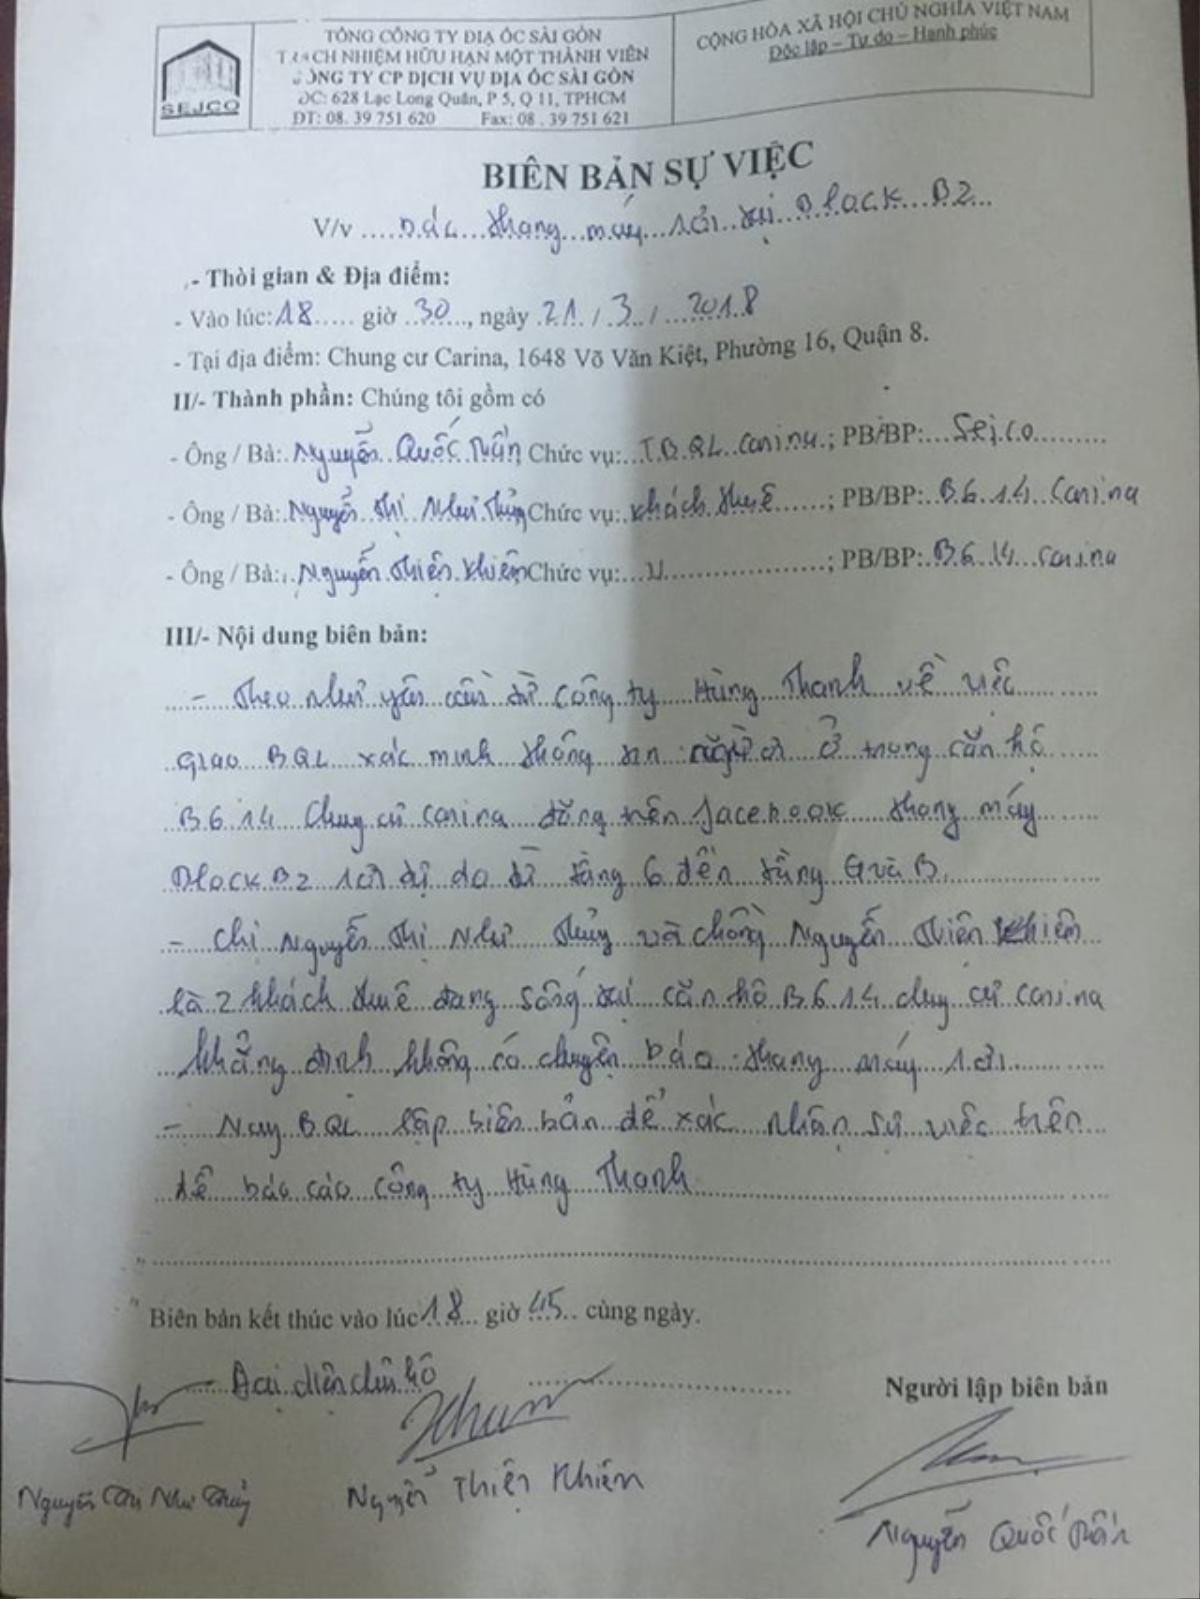 SEJCO
TỔNG CÔNG TY ĐỊA ỐC SÀI GÒN
TRÁCH NHIỆM HỮU HẠN MỘT THÀNH VIÊN
CÔNG TY CP DỊCH VỤ ĐỊA ỐC SÀI GÒN
ĐC: 628 Lạc Long Quân, P 5, Q 11, TPHCM
ĐT: 08. 39 751 620 Fax: 08 . 39 751 621
CỘNG HÒA XÃ HỘI CHỦ NGHĨA VIỆT NAM
Độc lập – Tự do – Hạnh phúc
BIÊN BẢN SỰ VIỆC
V/v báo thang máy rơi tại Block B2
- Thời gian & Địa điểm:
- Vào lúc: 18 giờ 30, ngày 21 / 3 / 2018
- Tại địa điểm: Chung cư Carina, 1648 Võ Văn Kiệt, Phường 16, Quận 8.
II/- Thành phần: Chúng tôi gồm có
- Ông / Bà: Nguyễn Quốc Tuấn Chức vụ: T.BQL Carina; PB/BP: Sejco
- Ông / Bà: Nguyễn Thị Như Thủy Chức vụ: khách thuê; PB/BP: B6.14 Carina
- Ông / Bà: Nguyễn Thiện Khiêm Chức vụ: ; PB/BP: B6.14 Carina
III/- Nội dung biên bản:
- Theo như yêu cầu từ Công ty Hùng Thanh về việc
giao BQL xác minh thông tin người ở trong căn hộ
B6.14 Chung cư Carina đăng trên facebook thang máy
Block B2 rơi tự do từ tầng 6 đến tầng G và B.
- Chị Nguyễn Thị Như Thủy và chồng Nguyễn Thiện Khiêm
là 2 khách thuê đang sống tại căn hộ B6.14 chung cư Carina
khẳng định không có chuyện báo thang máy rơi.
- Nay BQL lập biên bản để xác nhận sự việc trên
để báo cáo công ty Hùng Thanh
Biên bản kết thúc vào lúc 18 giờ 45 cùng ngày.
Đại diện căn hộ
Người lập biên bản
Nguyễn Thị Như Thủy
Nguyễn Thiện Khiêm
Nguyễn Quốc Tuấn